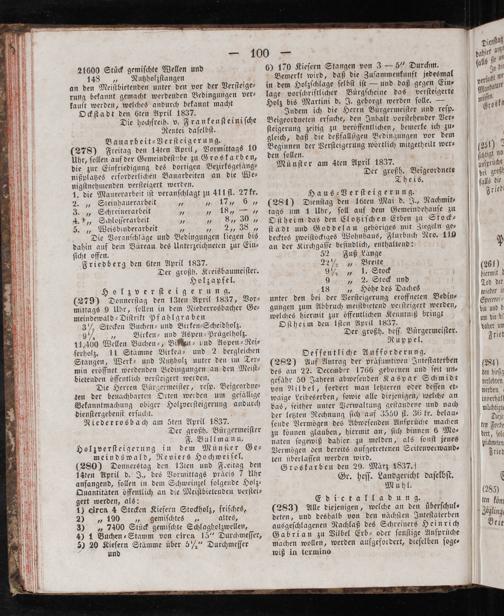 — 100 —
21600 Stück gemischte Wellen und
148 „ Nutzholzstangen
an den Meistbietenden unter den vor der Versteige-
rung bekannt gemacht werdenden Bedingungen ver-
kauft werden, welches andurch bekannt macht
Ockstadt den 6ten April 1837.
Die hochfreih. v. Frankensteinische
Rentei daselbst.
Bauarbeit-Versteigerung.
(278) Freitag den 14ten April, Vormittags 10
Uhr, sollen auf der Gemeindsstube zu Groskarben,
die zur Einfriedigung des dortigen Bezirksgefäng-
nißplatzes erforderlichen Bauarbeiten an die We-
nigstnehmenden versteigert werden.
1. die Maurerarbeit ist veranschlagt zu 411 fl. 27 kr.
2. „ Steinhauerarbeit „ „ 17 „ 6 „
3. „ Schreinerarbeit „ „ 18 „ — „
4. „ Schlosserarbeit „ „ 8 „ 30 „
5. „ Weisbinderarbeit „ „ 2 „ 38 „
Die Voranschläge und Bedingungen liegen bis
dahin auf dem Büreau des Unterzeichneten zur Ein-
sicht offen.
Friedberg den 6ten April 1837.
Der großh. Kreisbaumeister.
Holzapfel.
Holzversteigerung.
(279) Donnerstag den 13ten April 1837, Vor-
mittags 9 Uhr, sollen in dem Niederrosbacher Ge-
meindewald-Distrikt Pfahlgraben
3½ Stecken Buchen- und Birken-Scheidholz,
9¾ „ Birken- und Aspen-Prügelholz,
11,400 Wellen Buchen-, Birken- und Aspen-Rei-
serholz, 11 Stämme Birken- und 2 dergleichen
Stangen, Werk- und Nutzholz unter den im Ter-
min eröffnet werdenden Bedingungen an den Meist-
bietenden öffentlich versteigert werden.
Die Herren Bürgermeister, resp. Beigeordne-
ten der benachbarten Orten werden um gefällige
Bekanntmachung obiger Holzversteigerung andurch
dienstergebenst ersucht.
Niederrosbach am 5ten April 1837.
Der großh. Bürgermeister
F. Bullmann.
Holzversteigerung in dem Münster Ge-
meindswald, Reviers Hochweisel.
(280) Donnerstag den 13ten und Freitag den
14ten April d. J., des Vormittags präcis 7 Uhr
anfangend, sollen in dem Schweinzel folgende Holz-
Quantitäten öffentlich an die Meistbietenden verstei-
gert werden, als:
1) circa 4 Stecken Kiefern Stockholz, frisches,
2) „ 190 „ gemischtes „ altes,
3) „ 7400 Stück gemischte Eschlagholzwellen,
4) 1 Buchen-Stamm von circa 15" Durchmesser,
5) 20 Kiefern Stämme über 5½" Durchmesser
und
6) 170 Kiefern Stangen von 3 — 5" Durchm.
Bemerkt wird, daß die Zusammenkunft jedesmal
in dem Holzschlage selbst ist — und daß gegen Ein-
lage vorschriftlicher Bürgscheine das versteigerte
Holz bis Martini d. J. geborgt werden solle. —
Indem ich die Herren Bürgermeister und resp.
Beigeordneten ersuche, den Inhalt vorstehender Ver-
steigerung zeitig zu veröffentlichen, bemerke ich zu-
gleich, daß die desfallsigen Bedingungen vor dem
Beginnen der Versteigerung wörtlich mitgetheilt wer-
den sollen.
Münster am 4ten April 1837.
Der großh. Beigeordnete
Theis.
Haus-Versteigerung.
(281) Dienstag den 16ten Mai d. J., Nachmit-
tags um 1 Uhr, soll auf dem Gemeindehause zu
Ostheim das den Clotzischen Erben zu Stock-
stadt und Goddelau gehöriges mit Ziegeln ge-
decktes zweistockiges Wohnhaus, Flurbuch Nro. 119
an der Kirchgasse befindlich, enthaltend:
52 Fuß Länge
22½ „ Breite
9½ „ 1. Stock
9 „ 2. Stock und
18 „ Höhe des Daches
unter den bei der Versteigerung eröffneten Bedin-
gungen zum Abbruch meistbietend versteigert werden,
welches hiermit zur öffentlichen Kenntniß bringt
Ostheim den 1sten April 1837.
Der großh. hess. Bürgermeister.
Ruppel.
Oeffentliche Aufforderung.
(282) Auf Antrag der präsumtiven Intestaterben
des am 22. December 1766 gebornen und seit un-
gefähr 50 Jahren abwesenden Kaspar Schmidt
von Vilbel, fordert man letzteren oder dessen et-
waige Leibeserben, sowie alle diejenigen, welche an
das, seither unter Verwaltung gestandene und nach
der letzten Rechnung sich auf 3550 fl. 36 kr. belau-
fende Vermögen des Abwesenden Ansprüche machen
zu können glauben, hiermit an, sich binnen 6 Mo-
naten sogewiß dahier zu melden, als sonst jenes
Vermögen den bereits aufgetretenen Seitenverwand-
ten überlassen werden wird.
Groskarben den 29. März 1837.
Gr. hess. Landgericht daselbst.
Muhl.
Edictalladung.
(283) Alle diejenigen, welche an den überschul-
deten, und deshalb von den nächsten Intestaterben
ausgeschlagenen Nachlaß des Schreiners Heinrich
Gabrian zu Vilbel Erb- oder sonstige Ansprüche
machen wollen, werden aufgefordert, dieselben soge-
wiß in termino